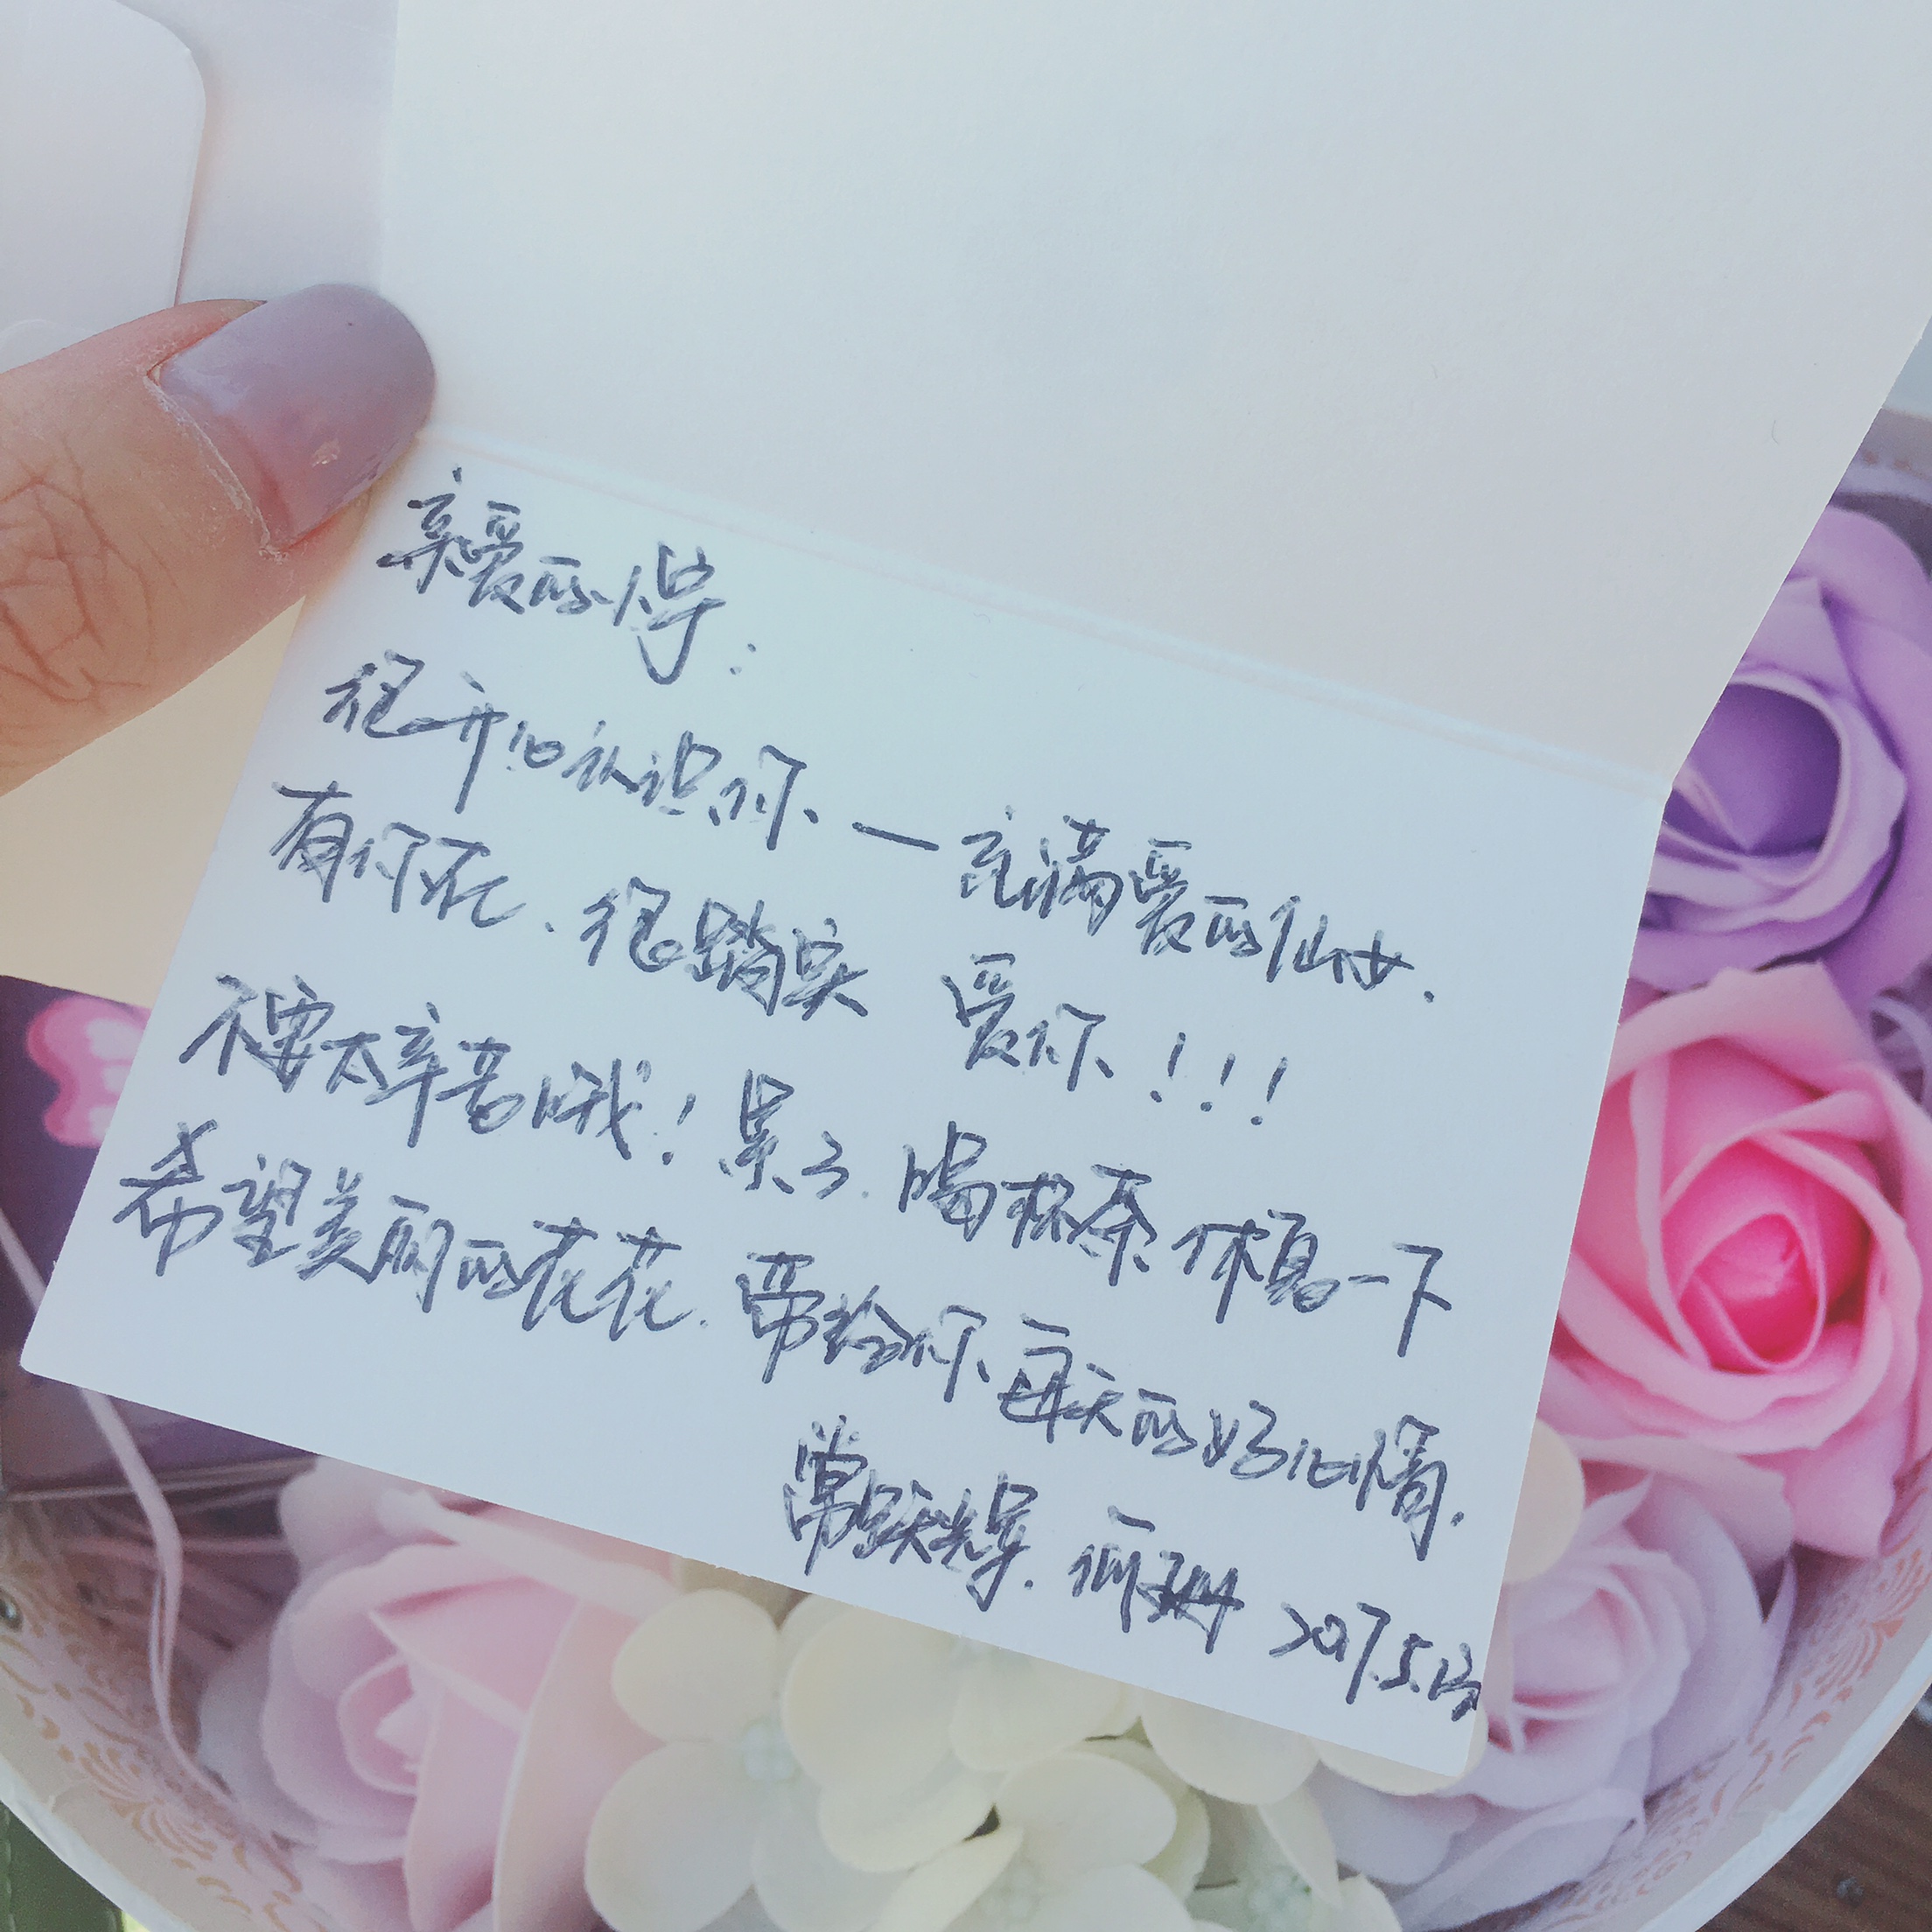 亲爱的小婷：
很开心认识你、一充满爱的仙女.
有你在.很踏实 爱你！！！
不要太辛苦哦！累了.喝杯茶休息一下
希望美丽的花花.带给你每天的好心情.
常跃辉. 2017.5.